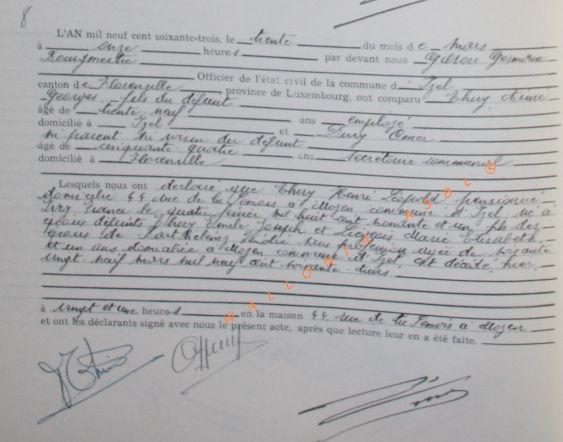 8
L'AN mil neuf cent soixante-trois, le trente du mois de mars
à onze heures par devant nous Gilson Germain
Bourgmestre
Officier de l'état civil de la commune d Izel
canton de Florenville province de Luxembourg, ont comparu Thiry Aimé
Georges, fils du défunt
âgé de trente neuf ans employé
domicilié à Izel et Omer
ni parent ni voisin du défunt
âgé de cinquante quatre ans secrétaire communal
domicilié à Florenville
Lesquels nous ont déclaré que Thiry Henri Léopold pensionné
domicilié 44 rue de la à Moyen commune d'Izel, né à
France le quatre mil huit cent nonante et un fils des
défunts Thiry Joseph et Marie Elisabeth
de sans profession âgée de
et un ans domiciliée à Moyen commune d'Izel, est décédé hier
vingt neuf mars mil neuf cent soixante trois
à vingt et une heures en la maison 44 rue de la à Moyen
et ont les déclarants signé avec nous le présent acte, après que lecture leur en a été faite.
WALLONIA ASBL ®